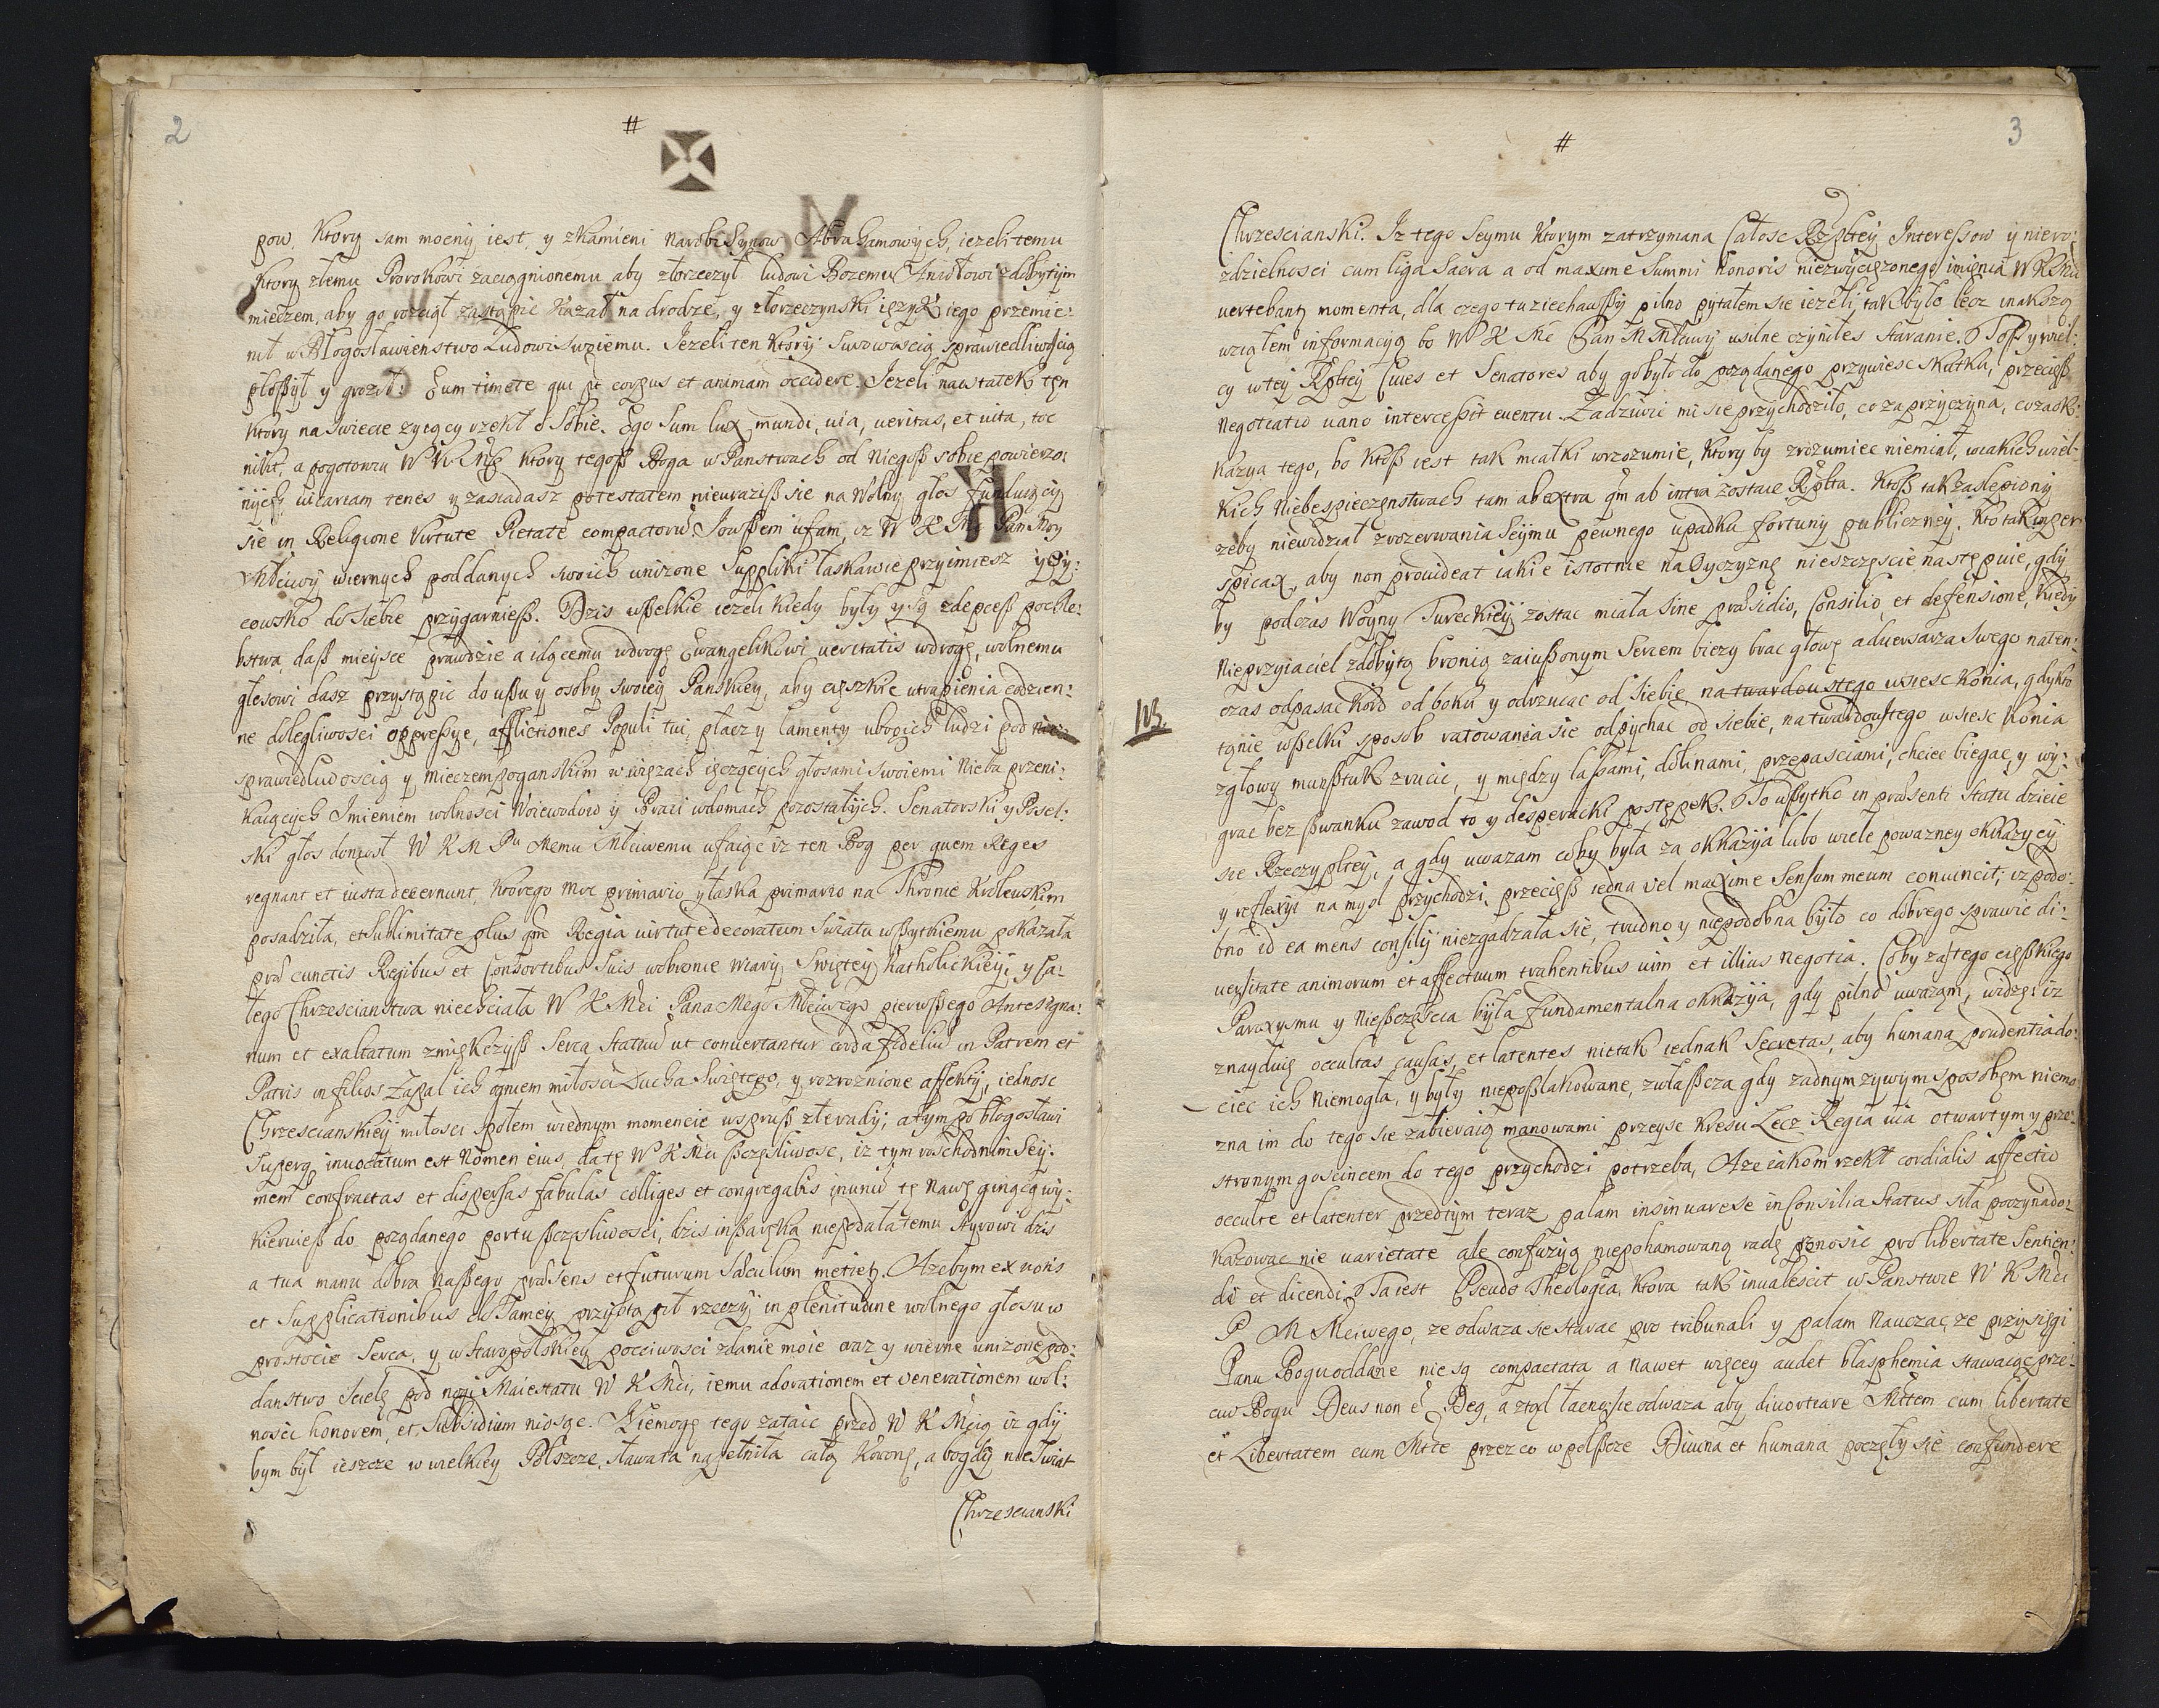 2
#
pow, Ktory sam mocny iest, y zkamieni narobic Synow Abrahamowych, iezeli temu
Ktory złemu Prorokowi zaciągnionemu aby złorzeczył ludowi Bozemu Aniołowi zdobytym
mieczem, aby go rozciął zastąpic kazał na drodze, y złorzeczynski ięzyk iego przemie:
nił w Błogosławienstwo Ludowi Swoiemu. Jezeli ten Ktory Surowoscią sprawiedliwoscią
płoszył y groził: Eum timete qui pt corpus et animam occidere. Jezeli nawstatek ten
Ktory na swiecie zyiący rzekł o Sobie. Ego Sum lux mundi, via, veritas, et vita, toc
nikt, a pogotowiu W K Mc Ktory tegoß Boga w Panstwach od niegoß sobie powierzo:
nych, vicariam tenes y zasiadasz potestatem nieuraziß sie na Wolny głos funduiący
sie in Religione Virtute Pietate compactorū. Jowßem ufam, iz W K Mc Pan Moy
Mciwy wiernych poddanych swoich unizone Suppliki łaskawie przyimiesz y Oy:
cowsko do Siebie przygarnieß. Dzis wßelkie iezeli kiedy były y są zdepceß pochle:
bstwa, daß mieysce prawdzie a idącemu wdrogę Ewangelikowi veritatis wdrogę, wolnemu
głosowi dasz przystąpic do ußu y osoby swoiey Panskiey, aby cięszkie utrapienia codzien:
ne dolegliwosci oppreßye, afflictiones Populi tui, płacz y lamenty ubogich ludzi pod nie:
sprawiedliwoscią y mieczem poganskim w więzach ięczących głosami swoiemi Nieba przeni:
kaiących Imieniem wolnosci Woiewodztw y Braci wdomach pozostałych. Senatorski y Posel:
ski głos doniosł W K M Pu Memu Mciwemu ufaiąc iz ten Bog per quem Reges
regnant et iusta decernunt, Ktorego moc primario y łaska primario na Thronie Krolewskim
posadziła, et Sublimitate plus qm Regia virtute decoratum Swiatu wßytkiemu pokazała
prae cunctis Regibus et Consortibus Suis wobronie wiary Swiętey Katholickiey, y ca:
łego Chrzescianstwa niechciała W K Mci Pana Mego Mciwego pierwßego Antesigna:
num et exaltatum zmiękczyß Serca Statuū ut convertantur corda fidelium in Patrem et
Patris in filios Zapal ich ogniem miłosci Ducha Swiętego, y rozroznione affekty, iednosc
Chrzescianskiey miłosci społem wiednym momencie wspruß złe rady, a tym pobłogosławi
Super q invocatum est Nomen eius, da tę W K Mci ßczęsliwosc, iz tym roschodnim Sey:
mem confractas et dispersas fabulas colliges et congregabis in unū tę nawę ginącą wy:
kieruieß do poządanego portu ßczęsliwosci, dzis inßarska niepodała temu Styrowi dzis
a tua manu dobra naßego praesens et futurum Saeculum metiet. Azebym ex votis
et Supplicationibus do Samey przystąpił rzeczy in plenitudine wolnego głosu w
prostocie Serca, y w Staropolskiey poczciwosci zdanie moie oraz y wierne unizone pod:
danstwo scielę pod nogi Maiestatu W K Mci, iemu adorationem et venerationem wol:
nosci honorem, et Subsidium niosąc. Niemogę tego zataic przed W K Mcią iz gdy
bym był ieszcze w wielkiey Polszcze, sława ta napełniła całą Koronę, a bogday nie Swiat
Chrzescianski
3
#
Chrzescianski. Iz tego Seymu Ktorym zatrzymana Całosc Rzpltey Interessow y niero:
zdzielnosci cum liga Sacra a od maxime Summi honoris niezwycięzonego imienia W K Mci
vertebant momenta, dla czego tu ziechawßy pilno pytałem sie iezeli, tak było lecz inakszą
wziąłem informacyą bo W K Mc Pan M Mciwy usilne czyniłes staranie. Toß y wiel:
cy wtey Rpltey Cives et Senatores aby go było do pozadanego przywiesc skutku, przecięß
negotiatio vano interceßit eventu. Zadziwic mi sie przychodziło, co za przyczyna, co za ok:
kazya tego, bo ktoß iest tak miałki wrozumie, Ktory by zrozumiec niemiał, wiakich wiel:
kich Niebespieczenstwach tam ab extra qm ab intra zostaie Rplta. Ktoß tak zaslepiony
zeby niewidział zrozerwania Seymu pewnego upadku fortuny publiczney. Kto tak inper
spicax, aby non provideat iakie istotnie na Oyczyznę nieszczęscie nastepuie, gdy
by podczas Woyny Tureckiey zostac miała sine praesidio, Consilio, et defensione, kiedy
Nieprzyiaciel zdobytą bronią zaiußonym Sercem biezy brac głowę adwersarza Swego naten:
czas odpasac kord od boku y odrzucac od siebie na twardoustego wsiesc konia, gdy kto
103. tąnie wßelki sposob ratowania sie odpychac od siebie, na twardoustego wsiesc konia
zgłowy munßtuk zrucic, y między lasami, dolinami, przepasciami, chciec biegac, y wy:
grac bez ßwanku zawod to y desperacki postępek. To wßytko in praesenti Statu dzieie
sie Rzeczypltey, a gdy uwazam coby była za okkazyia lubo wiele powazney okkazycy
y reflexyi na mysl przychodzi, przecięß iedna vel maxime Sensum meum convincit, iz podo:
bno id ea mens consilij niezgadzała sie, trudno y niepodobna było co dobrego sprawic di:
versitate animorum et affectuum trahentibus vim et illius negotia. Coby za tego cięßkiego
Paroxysmu y Nießczęscia była fundamentalna okkazyia, gdy pilno uwazam, widzę: iz
znayduią occultas causas, et latentes nietak iednak Secretas, aby humana prudentia do:
ciec ich niemogła, y były niepoßlakowane, zwłaßcza gdy zadnym zywym sposobem niemo
zna im do tego sie zabieraią manowami przeysc kresu Lecz Regia via otwartym y prze:
stronym goscincem do tego przychodzi potrzeba, Aze iakom rzekł cordialis affectio
occulte et latenter przedtym teraz palam insinuarese in Consilia Status siła poczyna do:
kazowac nie varietate ale confuzyą niepohamowaną radę ponosic pro libertate Sentien:
di et dicendi. Ta iest Pseudo Theologia, ktora tak invalescit w Panstwie W K Mci
P M Mciwego, ze odwaza sie stawac pro tribunali y palam nauczac, ze przysięgi
Panu Bogu oddane nie są compactata a nawet więcey audet blasphemia stawaiąc prze:
ciw Bogu Deus non ē Deg, a ztąd łacno sie odwaza aby divortiare Mttem cum libertate
et Libertatem cum Mtte przez co w polßcze Divina et humana poczęły się confundere